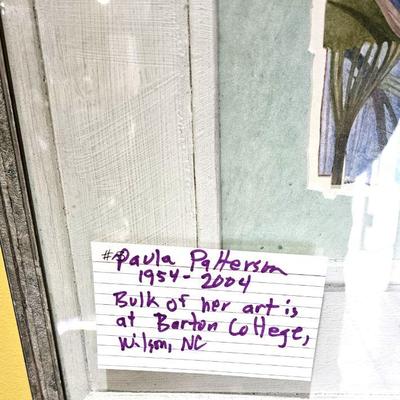 Paula Patterson
1954-2004
Bulk of her art is
at Barton College,
Wilson, NC